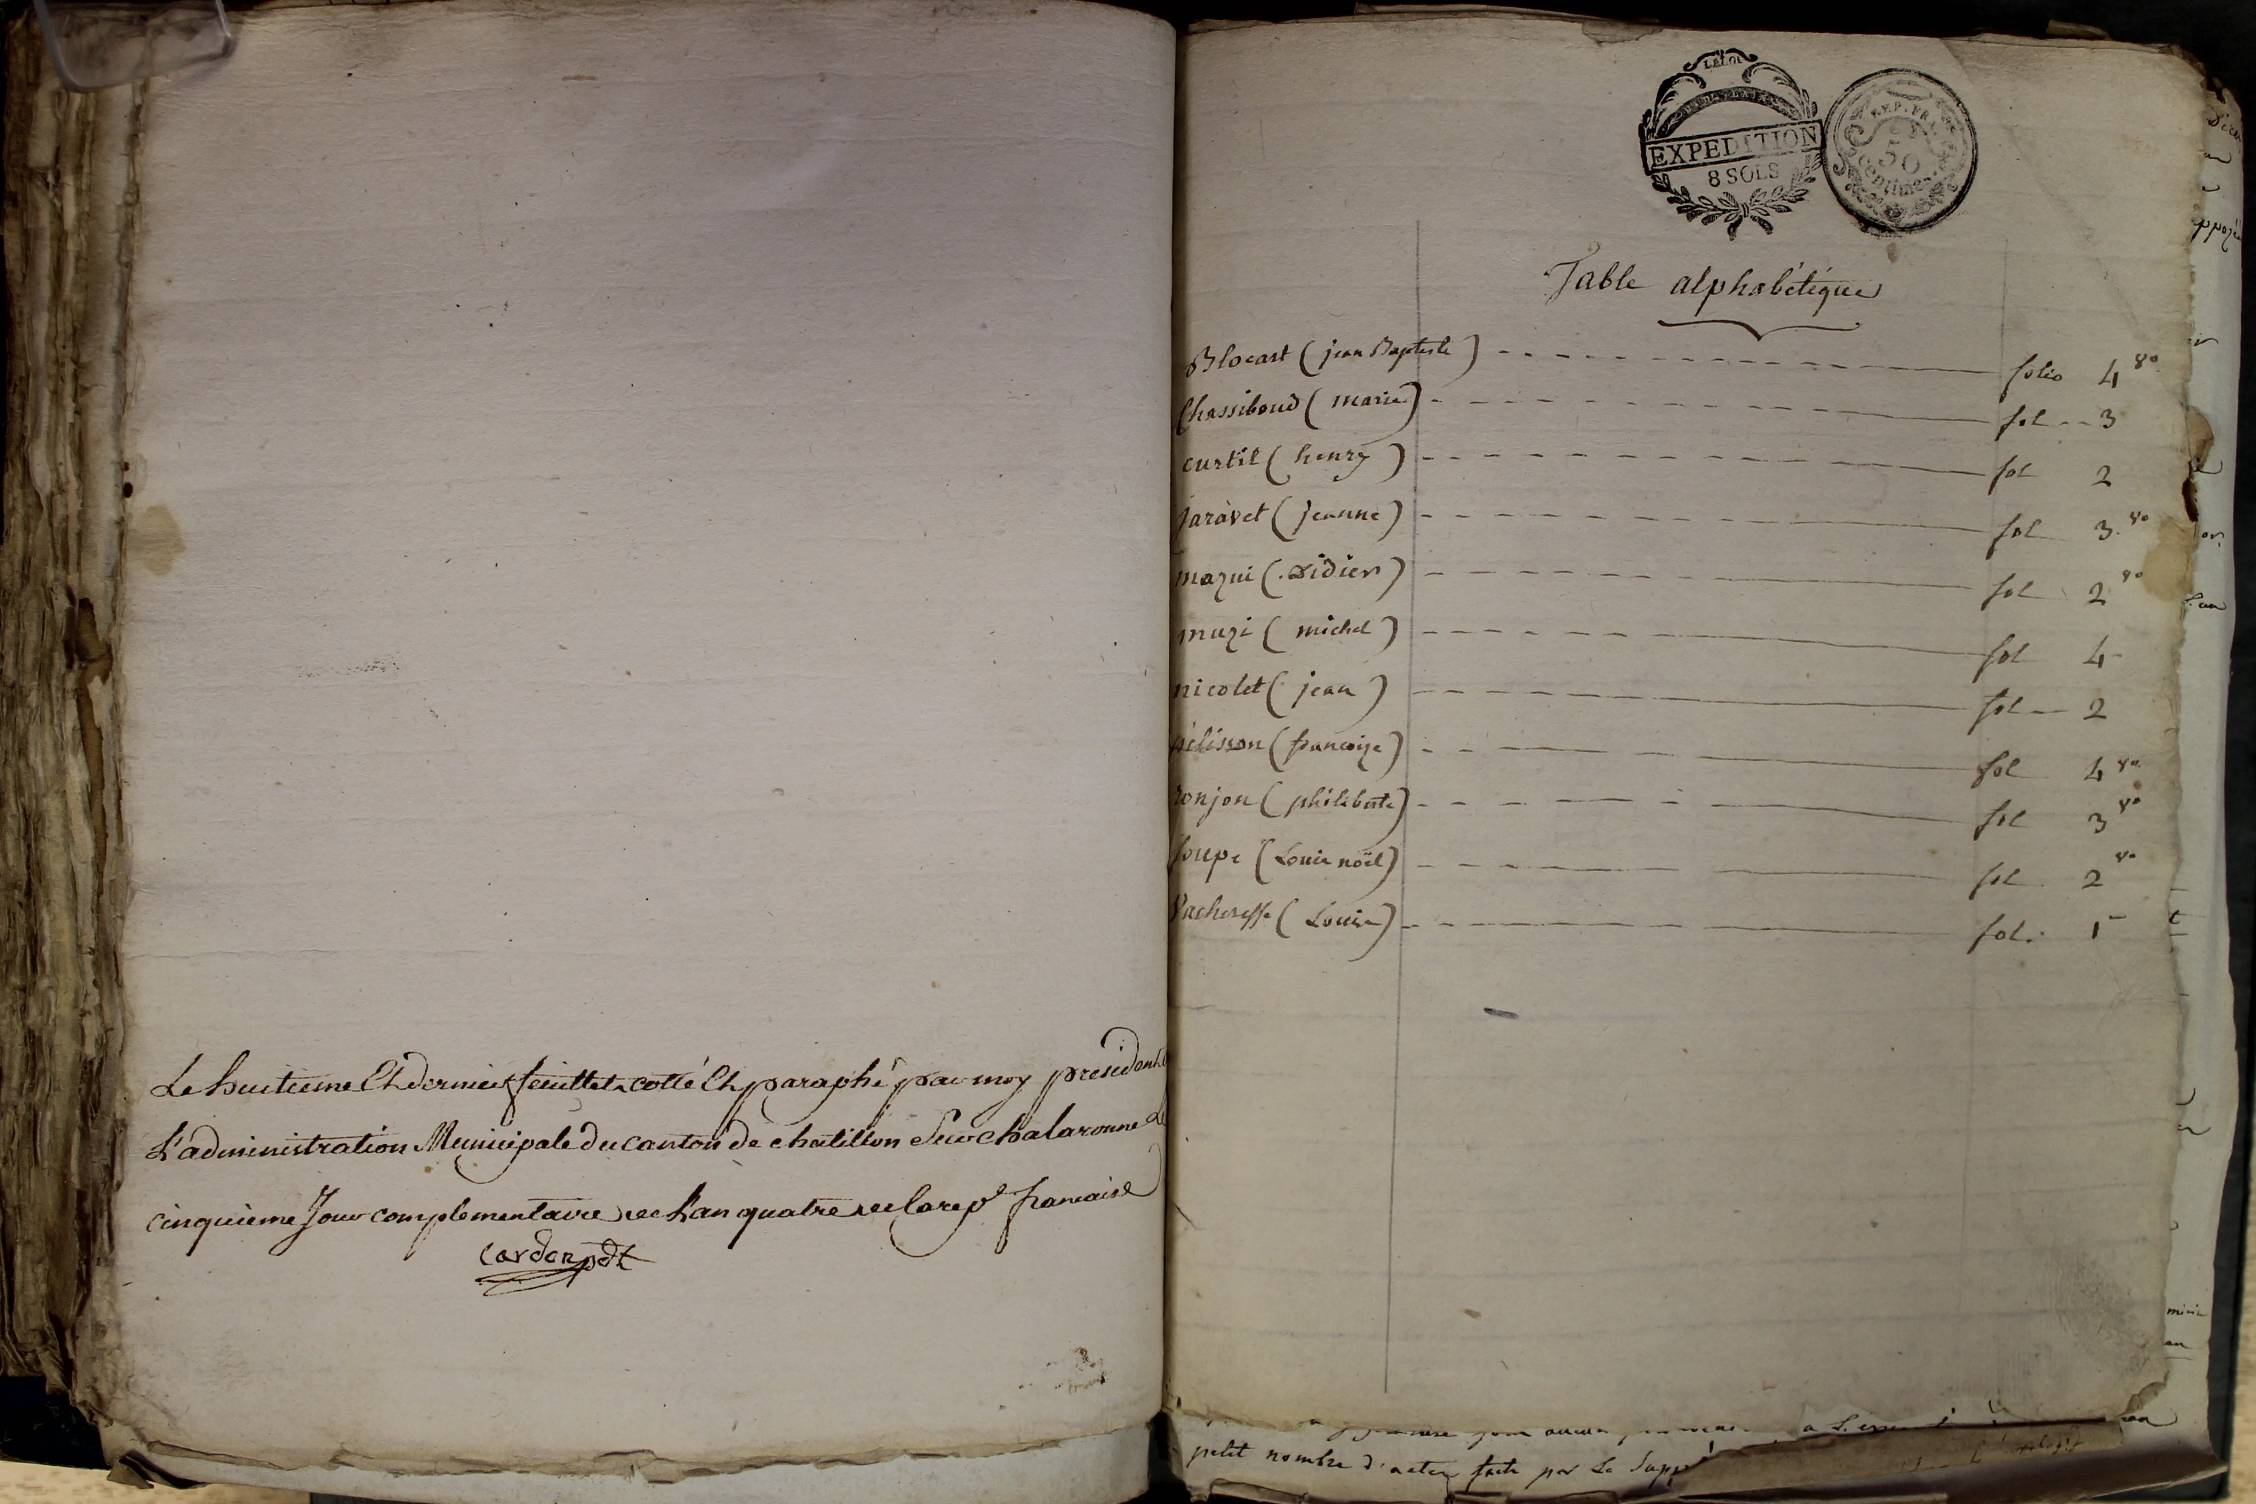 Le huitieme Et dernier feuillet cotté Et paraphé par moy president
L'administration Municipale du canton de chatillon sur chalaronne Le
cinquieme Jour complementaire de L'an quatre de La rep.e francaise
Cardon pdt
LA LOI
EXPEDITION
8 SOLS
REP. FRA.
50
centimes
Table alphabétique
Blocart (jean Baptiste) folio 4 vo
Chassiboud (marie) fol 3
curtil (henry) fol 2
jaravet (jeanne) fol 3 vo
mazui (Didier) fol 2 vo
muzi (michel) fol 4
nicolet (jean) fol 2
pélisson (francoize) fol 4 vo
ronjon (philiberte) fol 3 vo
soupe (Louis noël) fol 2 vo
Vacheresse (Louise) fol. 1
petit nombre d'actes faits par Le